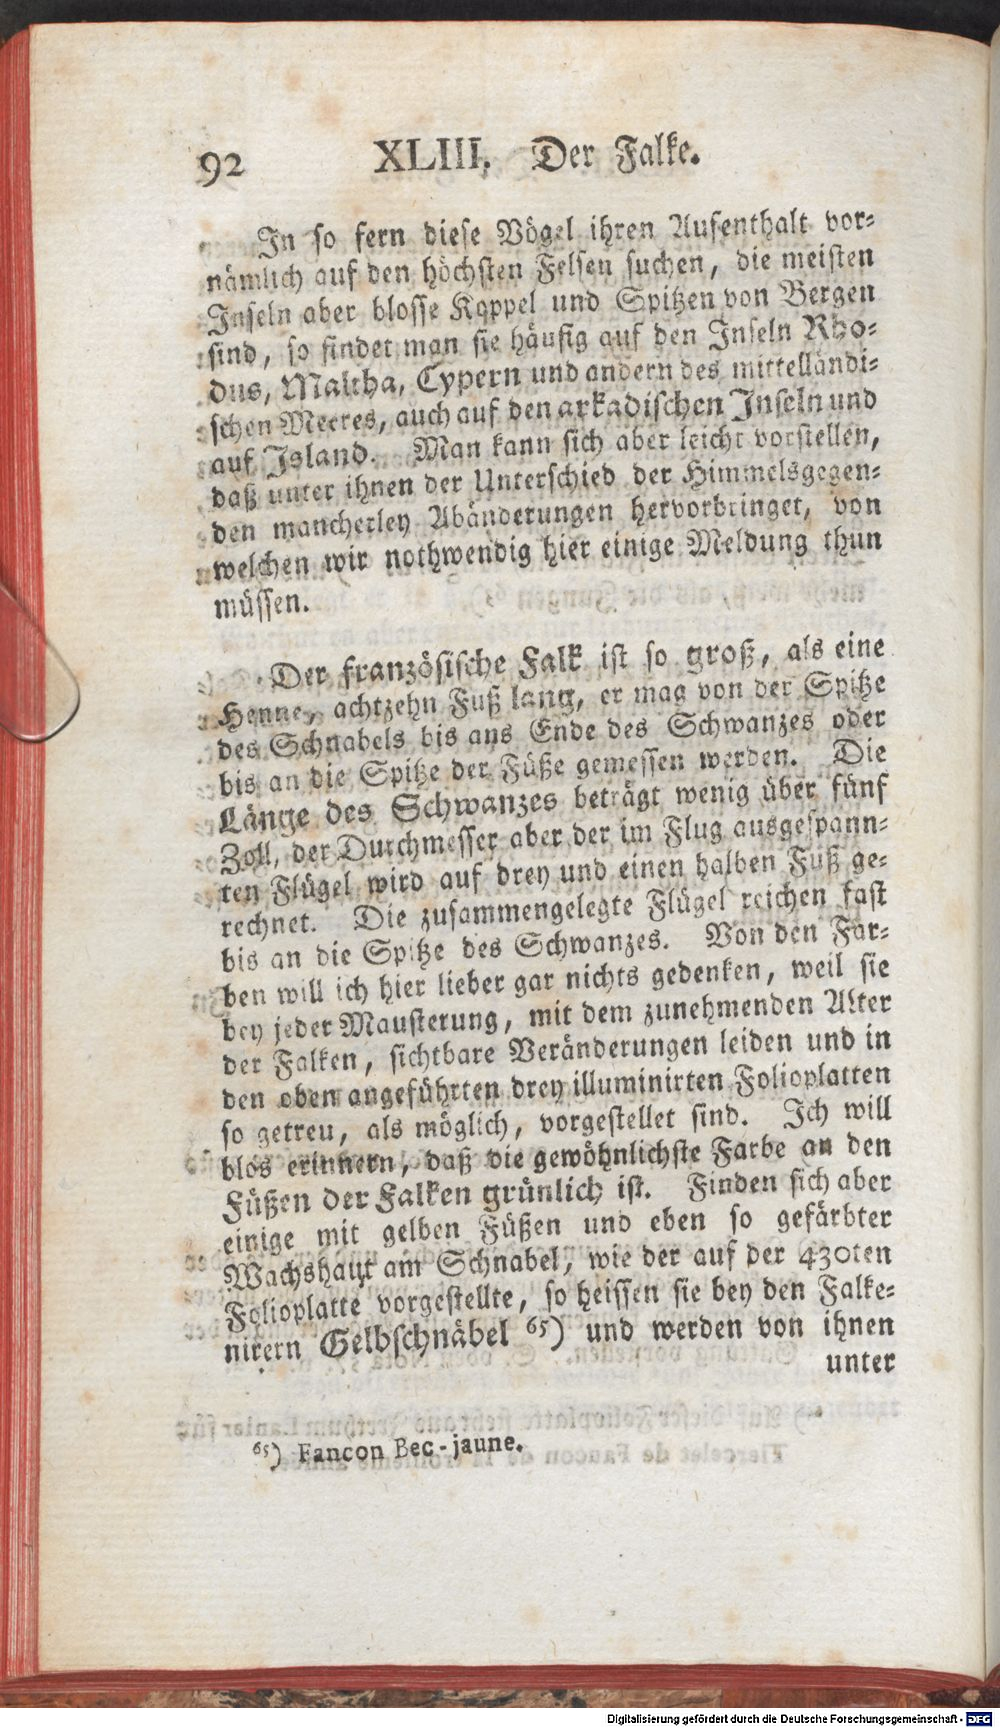 92 XLIII. Der Falke.
In so fern diese Vögel ihren Aufenthalt vor-
nämlich auf den höchsten Felsen suchen, die meisten
Inseln aber blosse Koppel und Spitzen von Bergen
sind, so findet man sie häufig auf den Inseln Rho-
dus, Maltha, Cypern und andern des mittelländi-
schen Meeres, auch auf den arkadischen Inseln und
auf Island. Man kann sich aber leicht vorstellen,
daß unter ihnen der Unterschied der Himmelsgegen-
den mancherley Abänderungen hervorbringet, von
welchen wir nothwendig hier einige Meldung thun
müssen.
Der französische Falk ist so groß, als eine
Henne, achtzehn Fuß lang, er mag von der Spitze
des Schnabels bis ans Ende des Schwanzes oder
bis an die Spitze der Füße gemessen werden. Die
Länge des Schwanzes beträgt wenig über fünf
Zoll, der Durchmesser aber der im Flug ausgespann-
ten Flügel wird auf drey und einen halben Fuß ge-
rechnet. Die zusammengelegte Flügel reichen fast
bis an die Spitze des Schwanzes. Von den Far-
ben will ich hier lieber gar nichts gedenken, weil sie
bey jeder Mausterung, mit dem zunehmenden Alter
der Falken, sichtbare Veränderungen leiden und in
den oben angeführten drey illuminirten Folioplatten
so getreu, als möglich, vorgestellet sind. Ich will
blos erinnern, daß die gewöhnlichste Farbe an den
Füßen der Falken grünlich ist. Finden sich aber
einige mit gelben Füßen und eben so gefärbter
Wachshaut am Schnabel, wie der auf der 430ten
Folioplatte vorgestellte, so heissen sie bey den Falke-
nirern Gelbschnäbel 65) und werden von ihnen
unter
65) Fancon Bec-jaune.
Digitalisierung gefördert durch die Deutsche Forschungsgemeinschaft - DFG